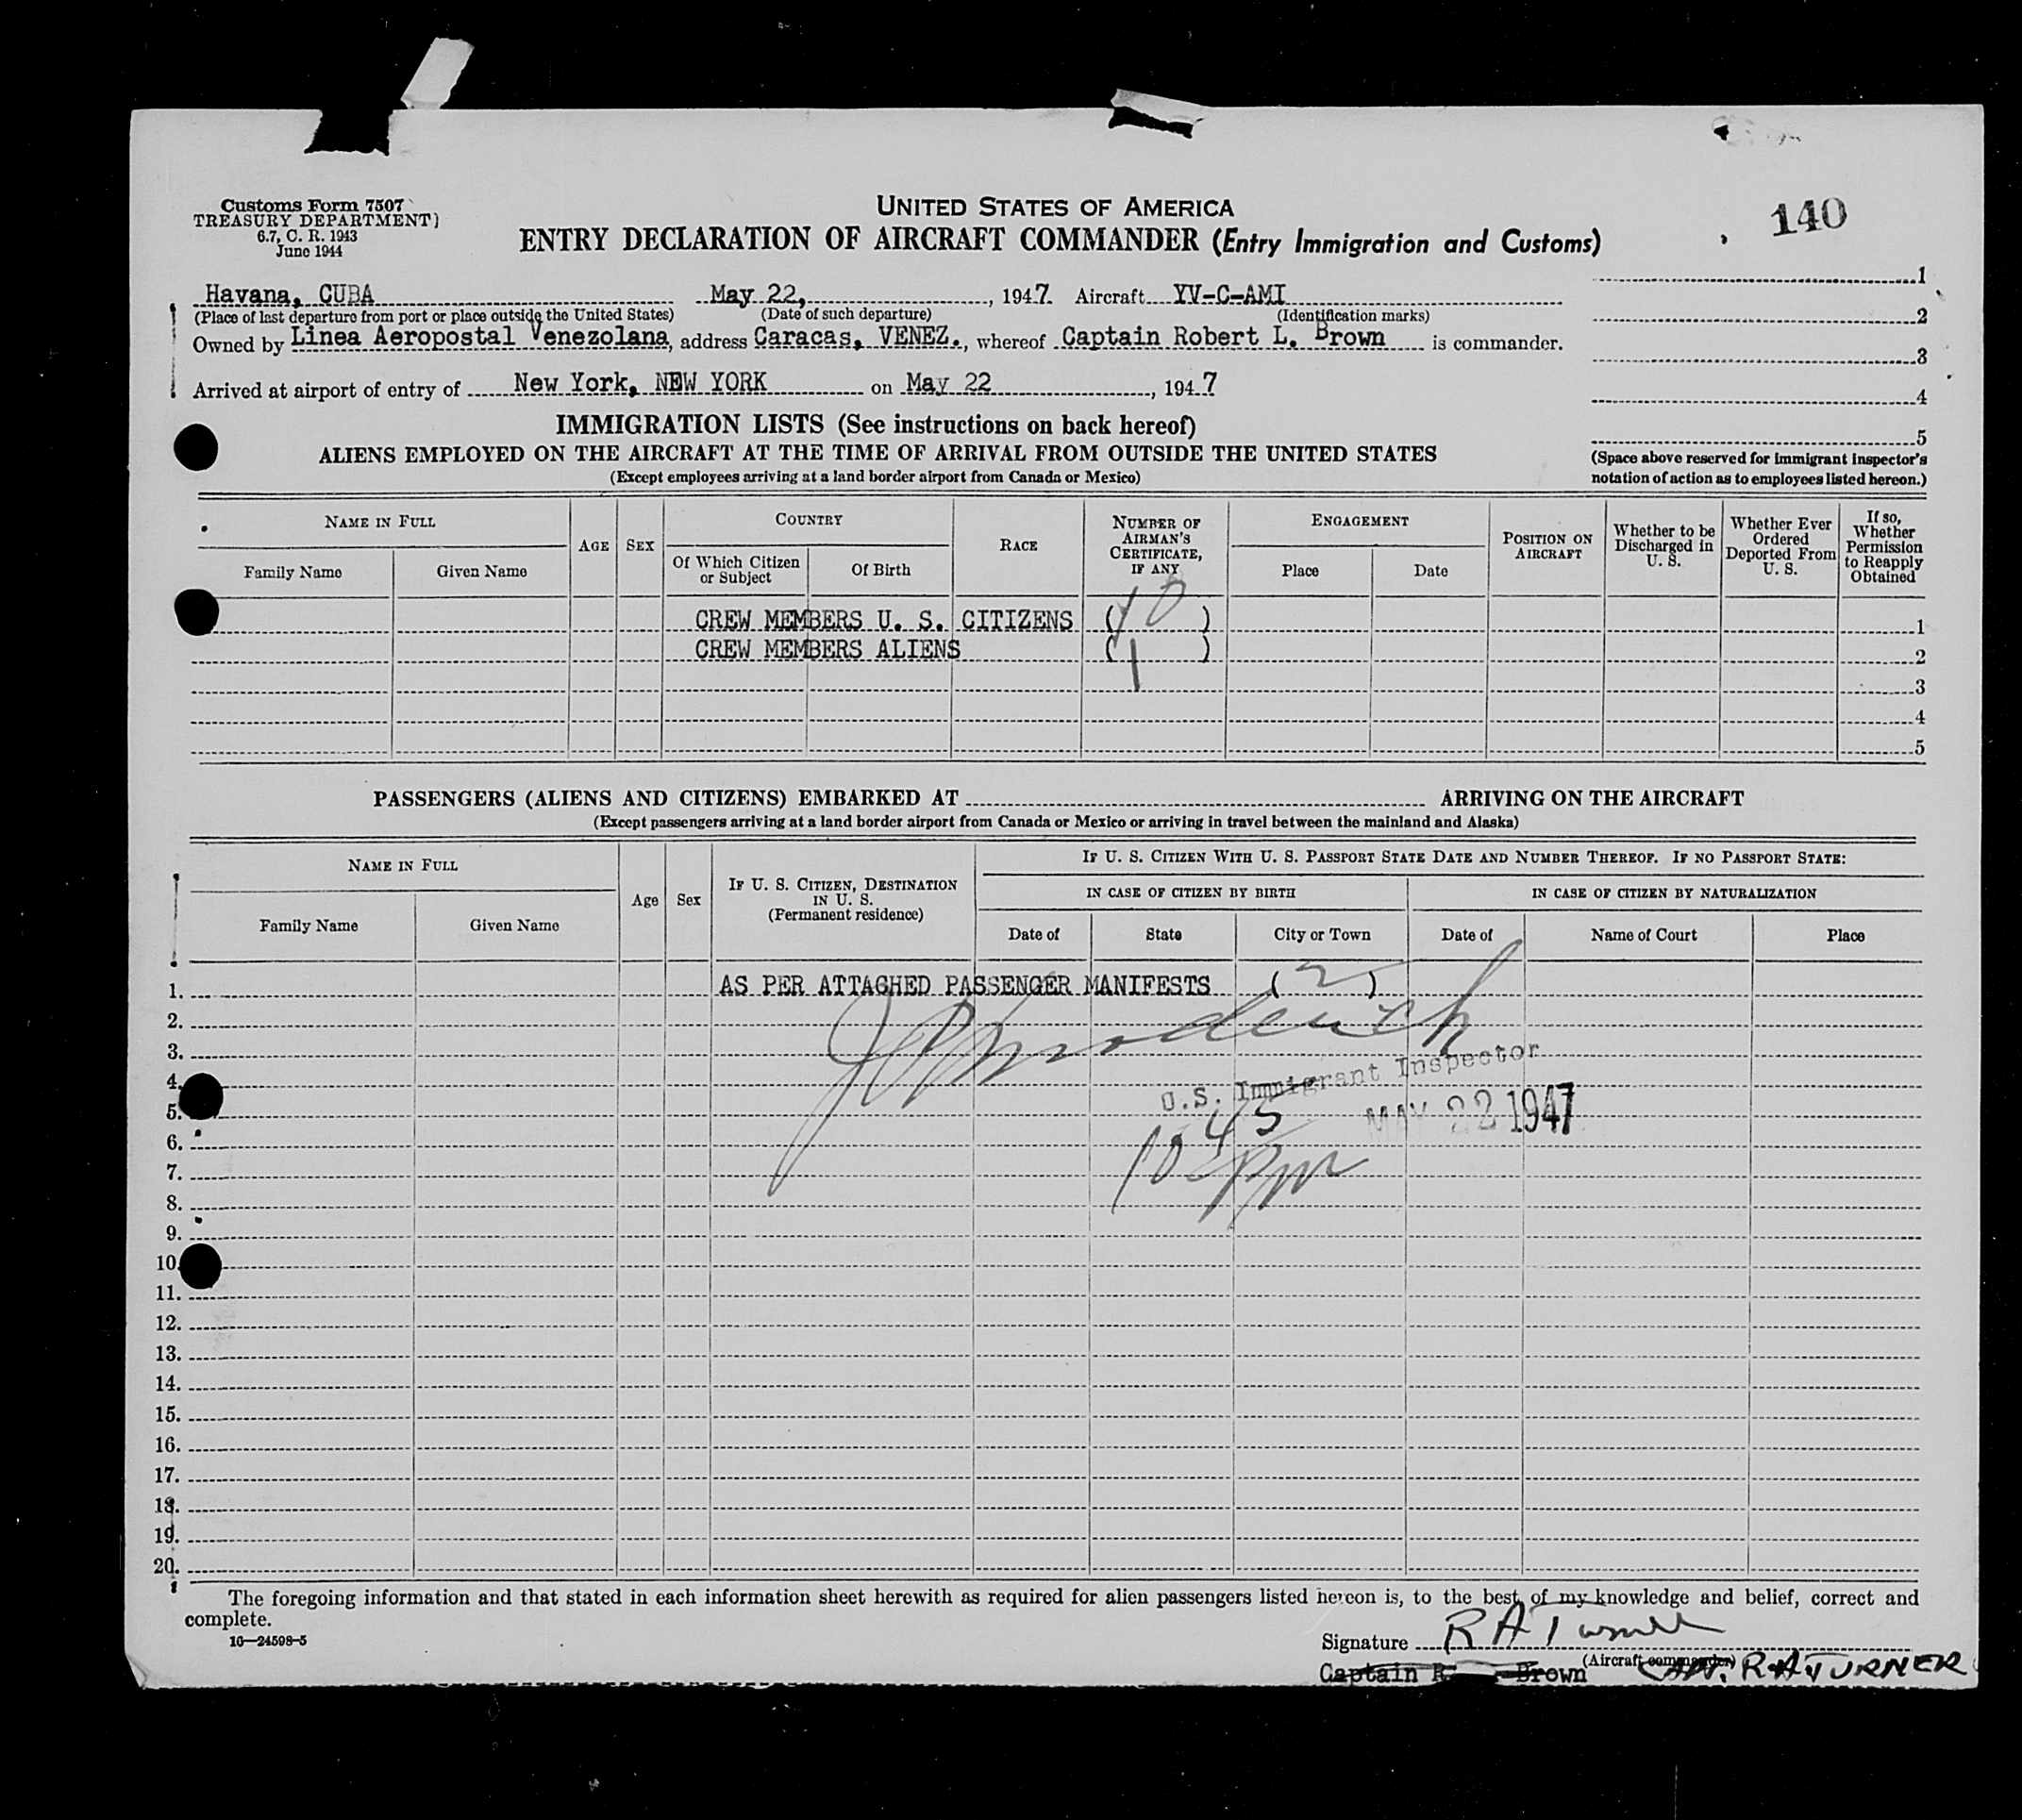 Customs Form 7507
TREASURY DEPARTMENT)
6.7, C. R. 1943
June 1944
UNITED STATES OF AMERICA
ENTRY DECLARATION OF AIRCRAFT COMMANDER (Entry Immigration and Customs)
140
Havana, CUBA May 22, , 1947. Aircraft YV-C-AMI
(Place of last departure from port or place outside the United States) (Date of such departure) (Identification marks)
Owned by Linea Aeropostal Venezolana, address Caracas, VENEZ., whereof Captain Robert L. Brown is commander.
Arrived at airport of entry of New York, NEW YORK on May 22 , 1947
1
2
3
4
5
(Space above reserved for immigrant inspector's
notation of action as to employees listed hereon.)
IMMIGRATION LISTS (See instructions on back hereof)
ALIENS EMPLOYED ON THE AIRCRAFT AT THE TIME OF ARRIVAL FROM OUTSIDE THE UNITED STATES
(Except employees arriving at a land border airport from Canada or Mexico)
NAME IN FULL
Family Name
Given Name
AGE
SEX
COUNTRY
Of Which Citizen
or Subject
Of Birth
RACE
NUMBER OF
AIRMAN'S
CERTIFICATE,
IF ANY
ENGAGEMENT
Place
Date
POSITION ON
AIRCRAFT
Whether to be
Discharged in
U. S.
Whether Ever
Ordered
Deported From
U. S.
If so,
Whether
Permission
to Reapply
Obtained
CREW MEMBERS U. S. CITIZENS (10) 1
CREW MEMBERS ALIENS (1) 2
3
4
5
PASSENGERS (ALIENS AND CITIZENS) EMBARKED AT ARRIVING ON THE AIRCRAFT
(Except passengers arriving at a land border airport from Canada or Mexico or arriving in travel between the mainland and Alaska)
NAME IN FULL
Family Name
Given Name
Age
Sex
IF U. S. CITIZEN, DESTINATION
IN U. S.
(Permanent residence)
IF U. S. CITIZEN WITH U. S. PASSPORT STATE DATE AND NUMBER THEREOF. IF NO PASSPORT STATE:
IN CASE OF CITIZEN BY BIRTH
Date of
State
City or Town
IN CASE OF CITIZEN BY NATURALIZATION
Date of
Name of Court
Place
1. AS PER ATTACHED PASSENGER MANIFESTS (2)
2.
3.
4.
U.S. Immigrant Inspector
5.
MAY 22 1947
6.
1045 PM
7.
8.
9.
10.
11.
12.
13.
14.
15.
16.
17.
18.
19.
20.
The foregoing information and that stated in each information sheet herewith as required for alien passengers listed hereon is, to the best of my knowledge and belief, correct and
complete.
16—24598-5
Signature R A Turner
(Aircraft commander)
Captain R. Brown CAPT. R.A. TURNER